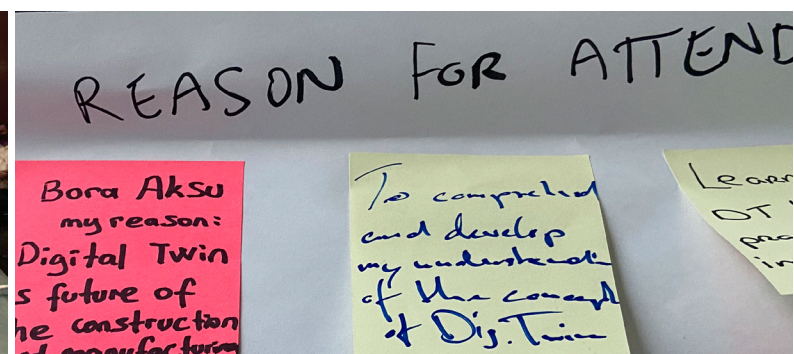 REASON FOR ATTEND
Bora Aksu
my reason:
Digital Twin
s future of
he construction
manufacturing
To comprehend
and develop
my understandin
of the concept
of Dig. Twin
Learn
DT
pro
in